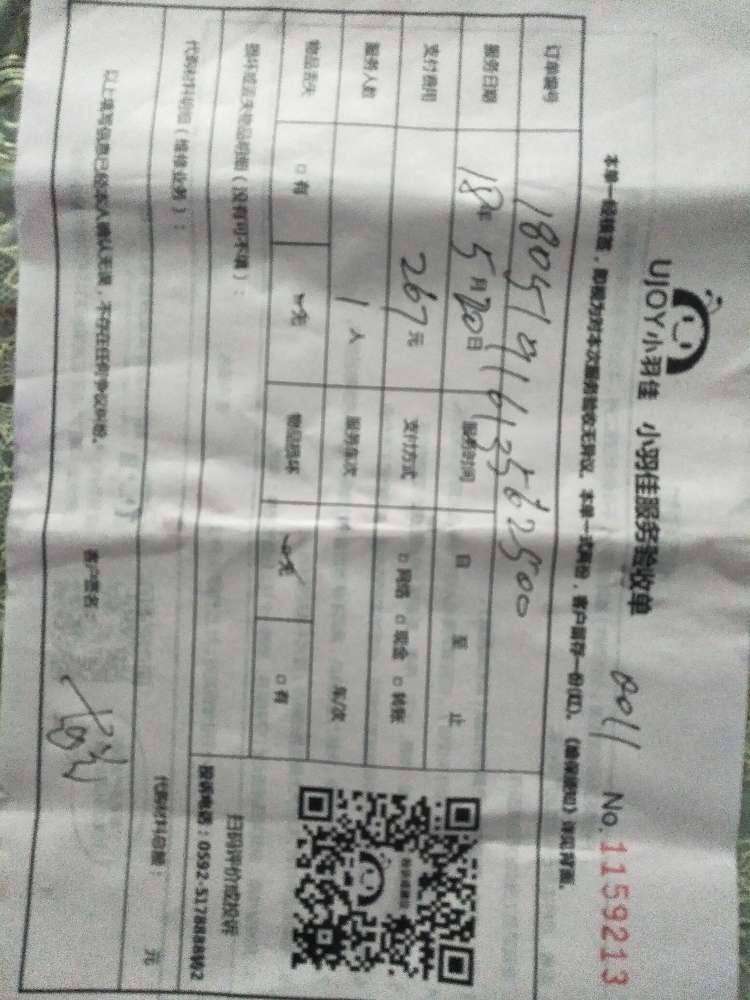 UJOY小羽佳 小羽佳服务验收单 0011 No.1159213
本单一经签署,即视为对本次服务验收无异议。本单一式两份,客户留存一份(红)。
订单编号
服务日期 18年5月20日 服务时间 日 至 止
支付费用 267元 支付方式 □网络 □现金 □转账
服务人数 1人 服务车次 车/次
物品丢失 □有 □无 物品损坏 □无 □有
损坏或丢失物品明细(没有可不填):
扫码评价或投诉
投诉电话:0592-5178888转2
代购材料明细(维修业务): 代购材料总额: 元
以上填写信息已经本人确认无误,不存在任何争议纠纷。 客户签名: